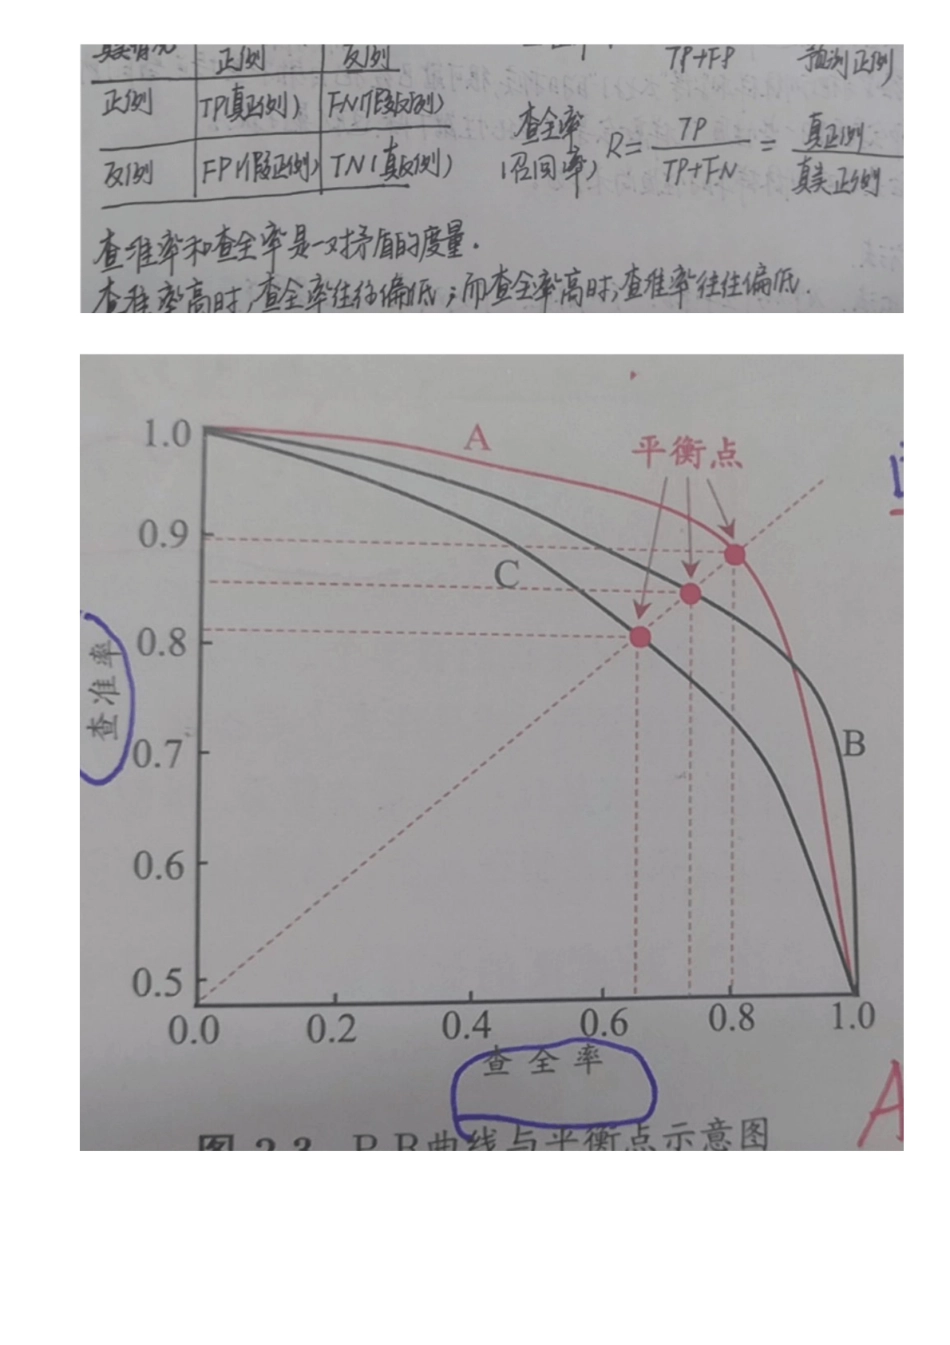 正例 反例
TP+FP 预测正例
正例 TP(真正例) FN(假反例)
查全率 R= TP / TP+FN = 真正例 / 真实正例
(召回率)
反例 FP(假正例) TN(真反例)
查准率和查全率是一对矛盾的度量.
查准率高时,查全率往往偏低;而查全率高时,查准率往往偏低.
1.0
A
平衡点
0.9
C
0.8
查准率
0.7
B
0.6
0.5
0.0 0.2 0.4 0.6 0.8 1.0
查全率
A
图 2.3 P-R曲线与平衡点示意图